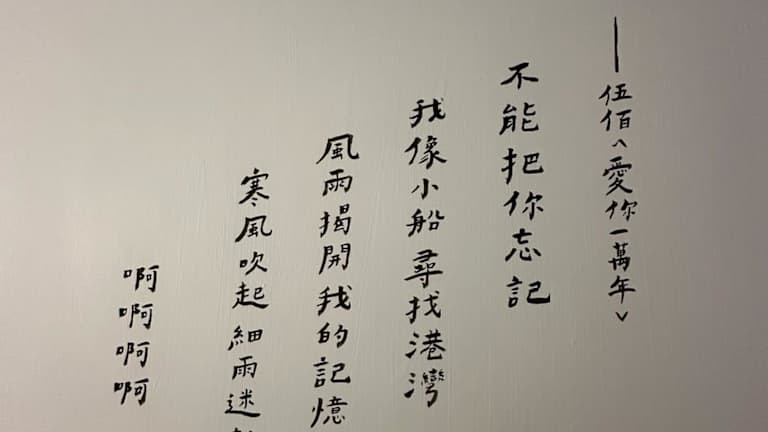 啊啊啊啊
寒風吹起 細雨迷
風雨揭開我的記憶
我像小船 尋找港灣
不能把你忘記
——伍佰〈愛你一萬年〉